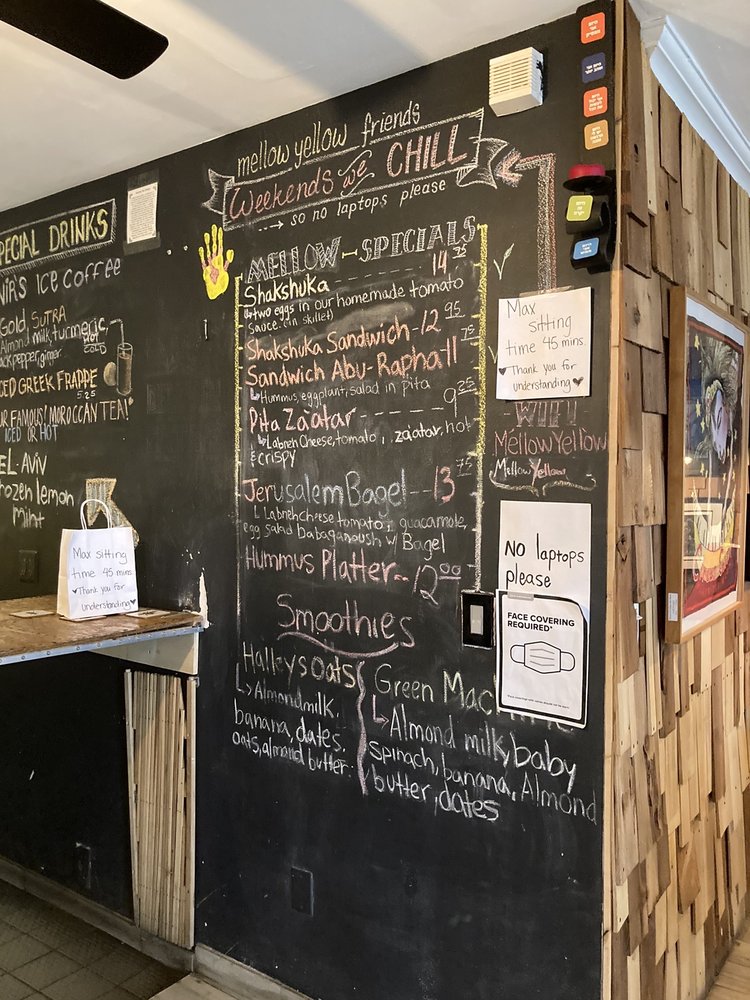 PECIAL DRINKS
NIR'S ICE COFFEE
Gold SUTRA
Almond milk, turmeric,
ack pepper, ginger.
HOT
COLD
CED GREEK FRAPPE
5.25
UR FAMOUS! MOROCCAN TEA!"
ICED OR HOT
EL AVIV
rozen lemon
mint
Max sitting
time 45 mins.
Thank you for
understanding
mellow yellow friends
Weekends we CHILL
so no laptops please
MELLOW - SPECIALS
Shakshuka 14 75
two eggs in our homemade tomato
sauce. (in skillet)
Shakshuka Sandwich - 12 95
Sandwich Abu-Rapha - 11 75
Hummus, eggplant, salad in pita
Pita Za'atar - - - - - 9 25
Labneh Cheese, tomato, za'atar, hot
& crispy
Jerusalem Bagel -- 13 75
Labneh cheese tomato, guacamole,
egg salad babaganoush w/ Bagel
Hummus Platter -- 12 00
Smoothies
Halleys oats
Almond milk,
banana, dates.
oats, almond butter.
Green Mac
Almond milk, baby
spinach, banana, Almond
butter, dates
Max
sitting
time 45 mins.
Thank you for
understanding
WIFI
MellowYellow
MellowYellow
NO laptops
please
FACE COVERING
REQUIRED*